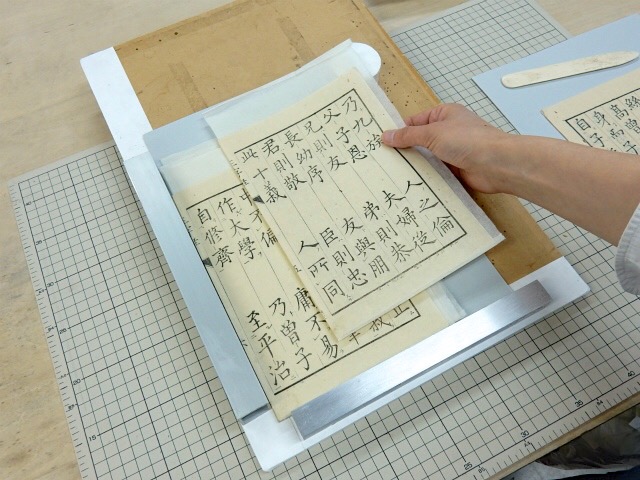 乃九族　人之倫
父子恩　夫婦從
兄則友　弟則恭
長幼序　友與朋
君則敬　臣則忠
此十義　人所同
中不偏　庸不易
作大學　乃曾子
自修齊　至平治
高曾
身而
自子